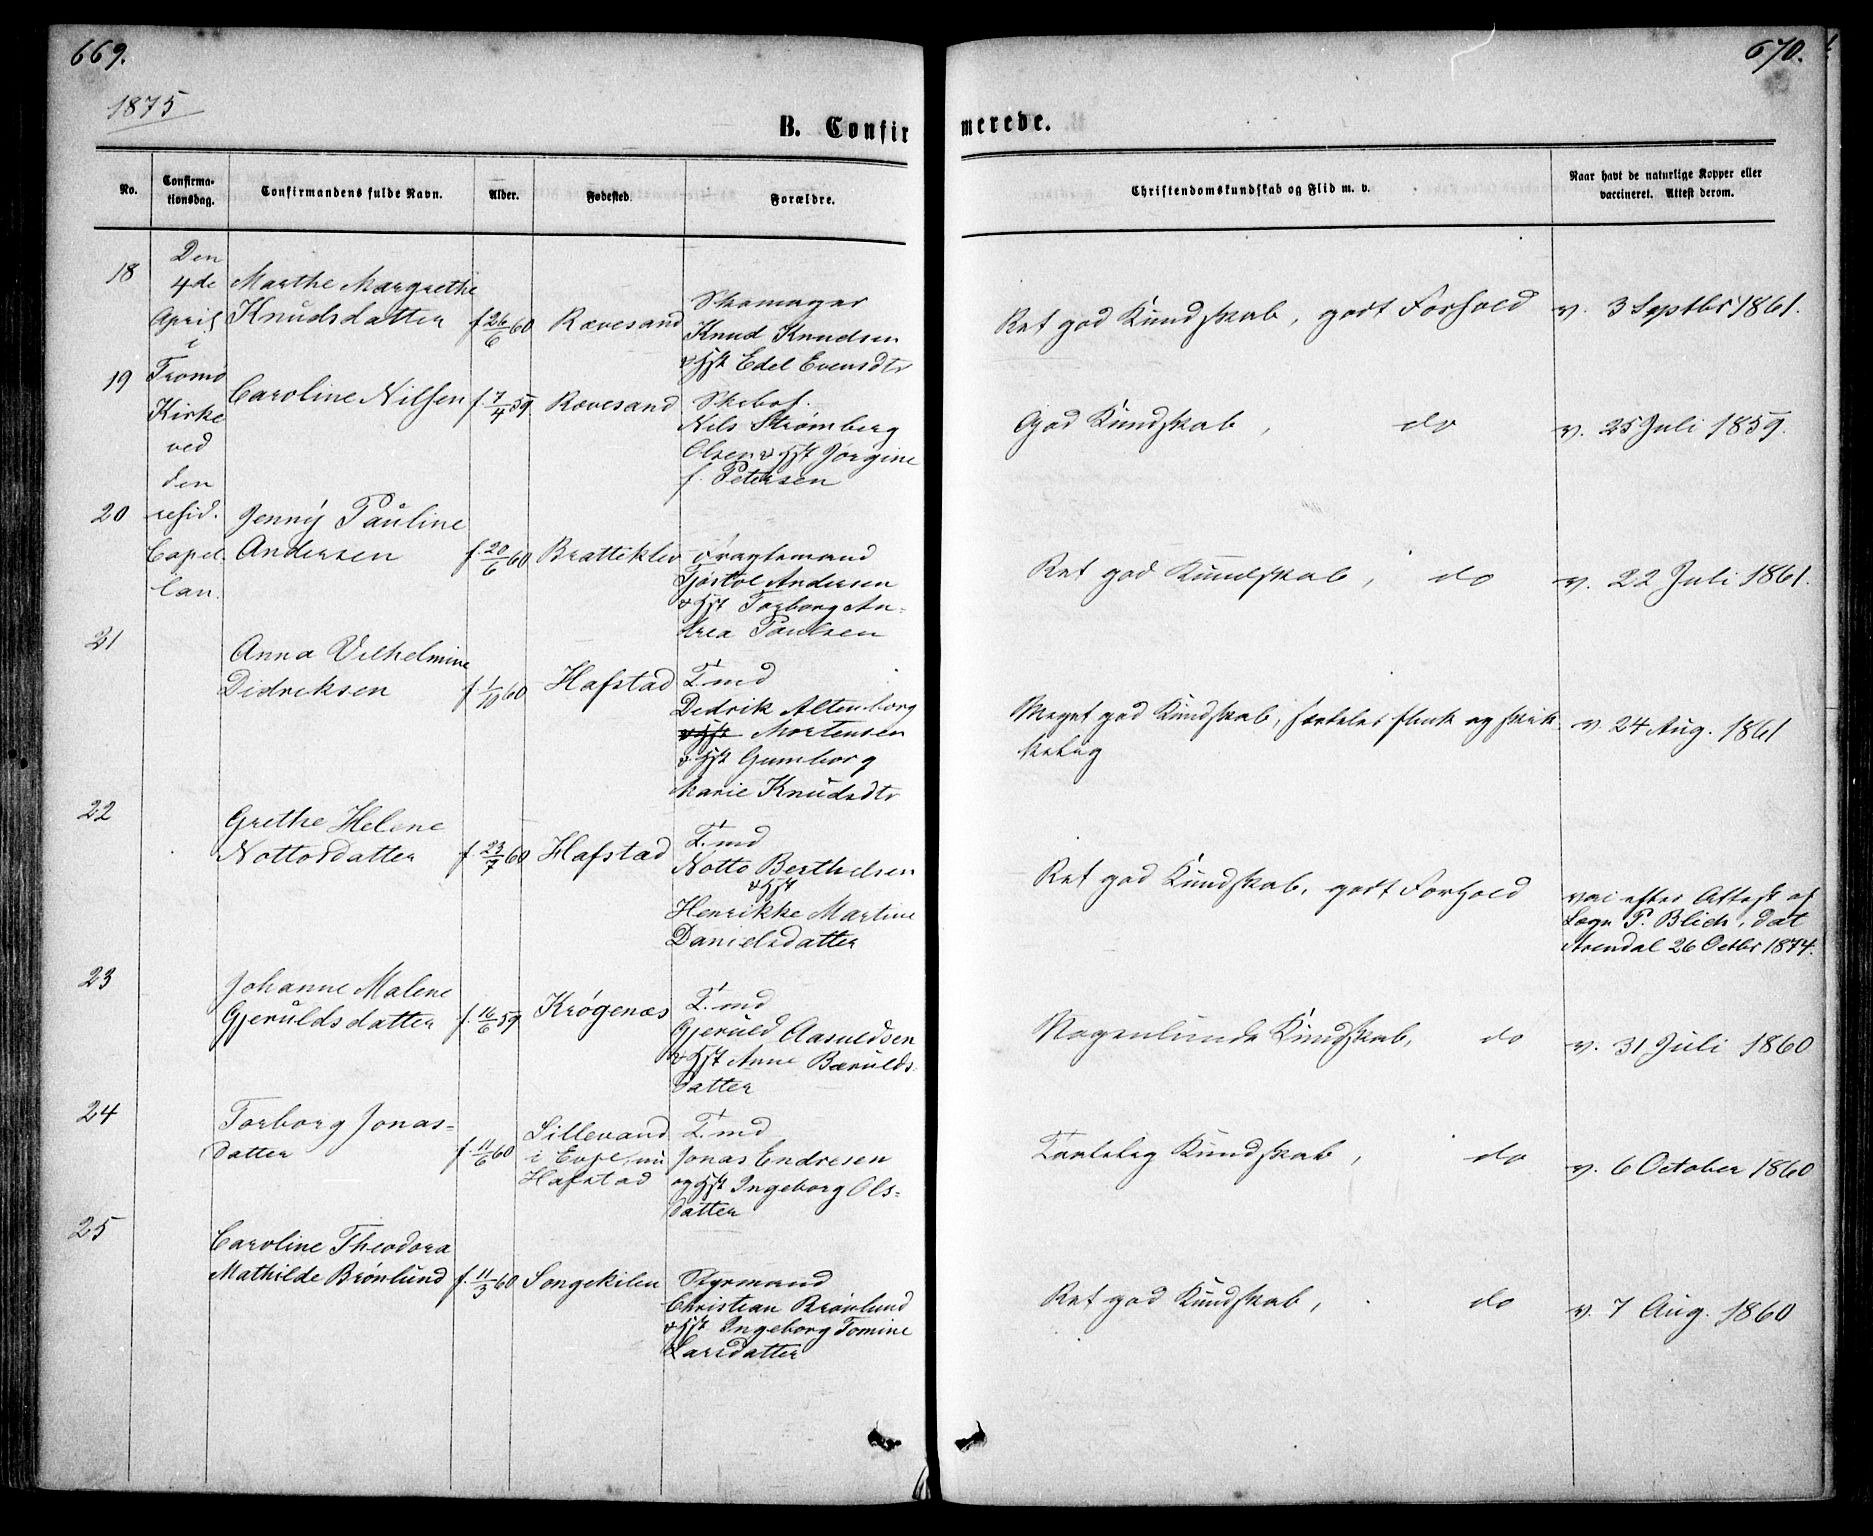 669.
670.
1875
B. Confirmerede.
No.
Confirmationsdag.
Confirmandens fulde Navn.
Alder.
Fødested.
Forældre.
Christendomskundskab og Flid m. v.
Naar havt de naturlige Kopper eller vaccineret. Attest derom.
Den
4de
April
i
Tromø
Kirke
ved
den
resid.
Capel
lan.
18
Marthe Margrethe
Knudsdatter
f 26/6 60
Rævesand
Skomager
Knud Knudsen
& Hst Edel Evensdtr
Ret god Kundskab, godt Forhold
v. 3 Septbr 1861.
19
Caroline Nilsen
f 7/4 59
Rævesand
Skibsf.
Nils Strømberg
Olsen & Hst Jørgine
f. Petersen
God Kundskab, do
v. 25 Juli 1859.
20
Jenny Pauline
Andersen
f. 20/6 60
Brattiklev
Fragtemand
Tjøstol Andersen
& Hst Torborg An-
drea Paulsen
Ret god Kundskab, do
v. 22 Juli 1861.
21
Anna Vilhelmine
Didriksen
f. 1/10 60
Hafstad
T. md
Dedrik Altenborg
& Hst Mortensen
& Hst Gumborg
Marie Knudsdtr
Meget god Kundskab, særdeles flink og skik
kelig
v. 24 Aug. 1861
22
Grethe Helene
Nottosdatter
f. 23/7 60
Hafstad
T. md
Notto Berthelsen
& Hst
Henrikke Martine
Danielsdatter
Ret god Kundskab, godt Forhold
vac efter Attest af
Læge P. Blich, dat
Arendal 26 Octbr 1874.
23
Johanne Malene
Gjeruldsdatter
f. 16/6 59
Krøgenæs
T. md
Gjeruld Aasuldsen
& Hst Anne Bærulds-
datter
Nogenlunde Kundskab, do
v. 31 Juli 1860
24
Torborg Jonas-
datter
f. 11/6 60
Lillevand
i Evje, nu
Hafstad
T. md
Jonas Endresen
og Hst Ingeborg Ols-
datter
Taalelig Kundskab, do
v. 6 October 1860
25
Caroline Theodora
Mathilde Brønlund
f. 11/3 60
Songekilen
Styrmand
Christian Brønlund
& Hst Ingeborg Tomine
Larsdatter
Ret god Kundskab, do
v. 7 Aug. 1860